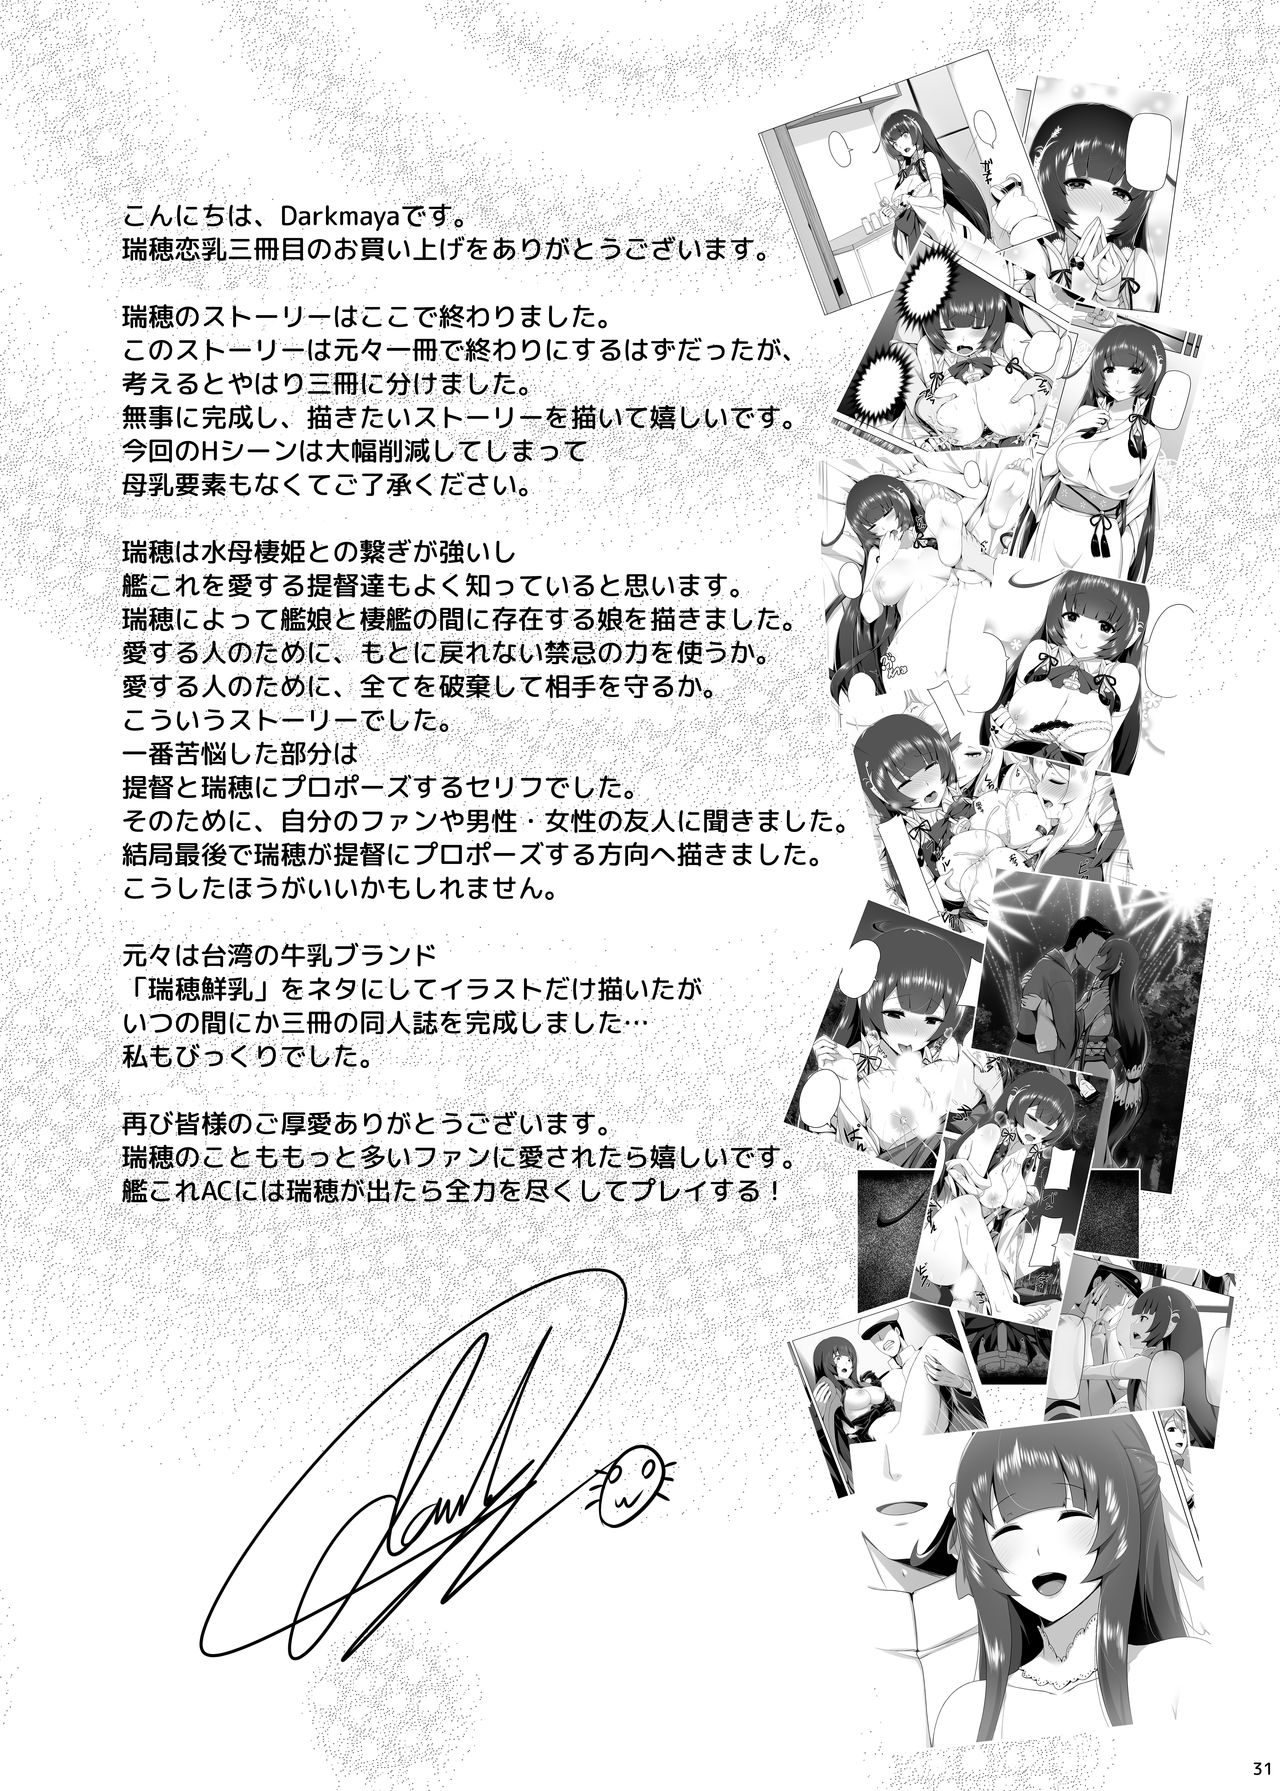 こんにちは、Darkmayaです。
瑞穂恋乳三冊目のお買い上げをありがとうございます。
瑞穂のストーリーはここで終わりました。
このストーリーは元々一冊で終わりにするはずだったが、
考えるとやはり三冊に分けました。
無事に完成し、描きたいストーリーを描いて嬉しいです。
今回のHシーンは大幅削減してしまって
母乳要素もなくてご了承ください。
瑞穂は水母棲姫との繋ぎが強いし
艦これを愛する提督達もよく知っていると思います。
瑞穂によって艦娘と棲艦の間に存在する娘を描きました。
愛する人のために、もとに戻れない禁忌の力を使うか。
愛する人のために、全てを破棄して相手を守るか。
こういうストーリーでした。
一番苦悩した部分は
提督と瑞穂にプロポーズするセリフでした。
そのために、自分のファンや男性・女性の友人に聞きました。
結局最後で瑞穂が提督にプロポーズする方向へ描きました。
こうしたほうがいいかもしれません。
元々は台湾の牛乳ブランド
「瑞穂鮮乳」をネタにしてイラストだけ描いたが
いつの間にか三冊の同人誌を完成しました…
私もびっくりでした。
再び皆様のご厚愛ありがとうございます。
瑞穂のことももっと多いファンに愛されたら嬉しいです。
艦これACには瑞穂が出たら全力を尽くしてプレイする！
31